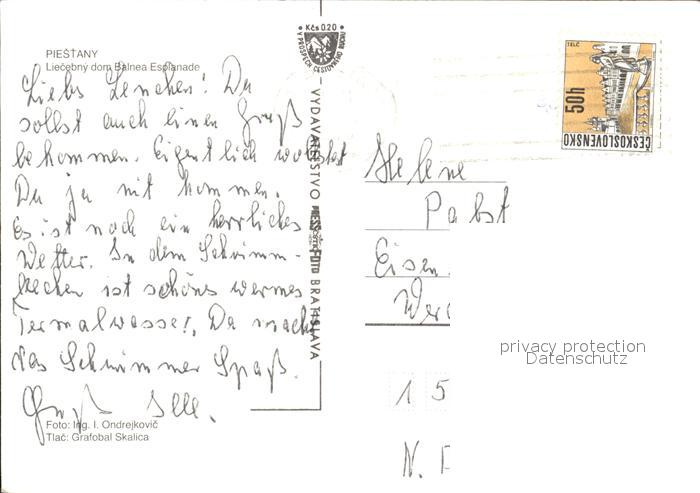 PIEŠŤANY
Liečebný dom Balnea Esplanade
Liebs Lenchen! Du
sollst auch einen Gruß
bekommen. Eigentlich wolltest
Du ja mit kommen.
Es ist noch ein herrliches
Wetter. In dem Schwimm-
becken ist schönes warmes
Termalwasser, Da macht
das Schwimmen Spaß.
Gruß
Foto: Ing. I. Ondrejkovič
Tlač: Grafobal Skalica
Kčs 0.20
V PROSPECH CESTOVNÉHO RUCHU
VYDAVATEĽSTVO PRESSFOTO BRATISLAVA
TELČ
50h
ČESKOSLOVENSKO
Helene
Pabst
Eisen
Wer
15
N.
privacy protection
Datenschutz